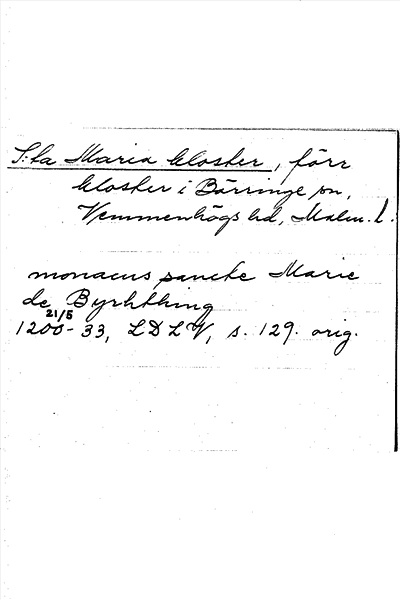 S:ta Maria kloster, förr
kloster i Börringe sn,
Vemmenhögs hd, Malm. l.
monacus sancte Marie
de Byrhthing
21/5
1200-33, LDLV, s. 129. orig.